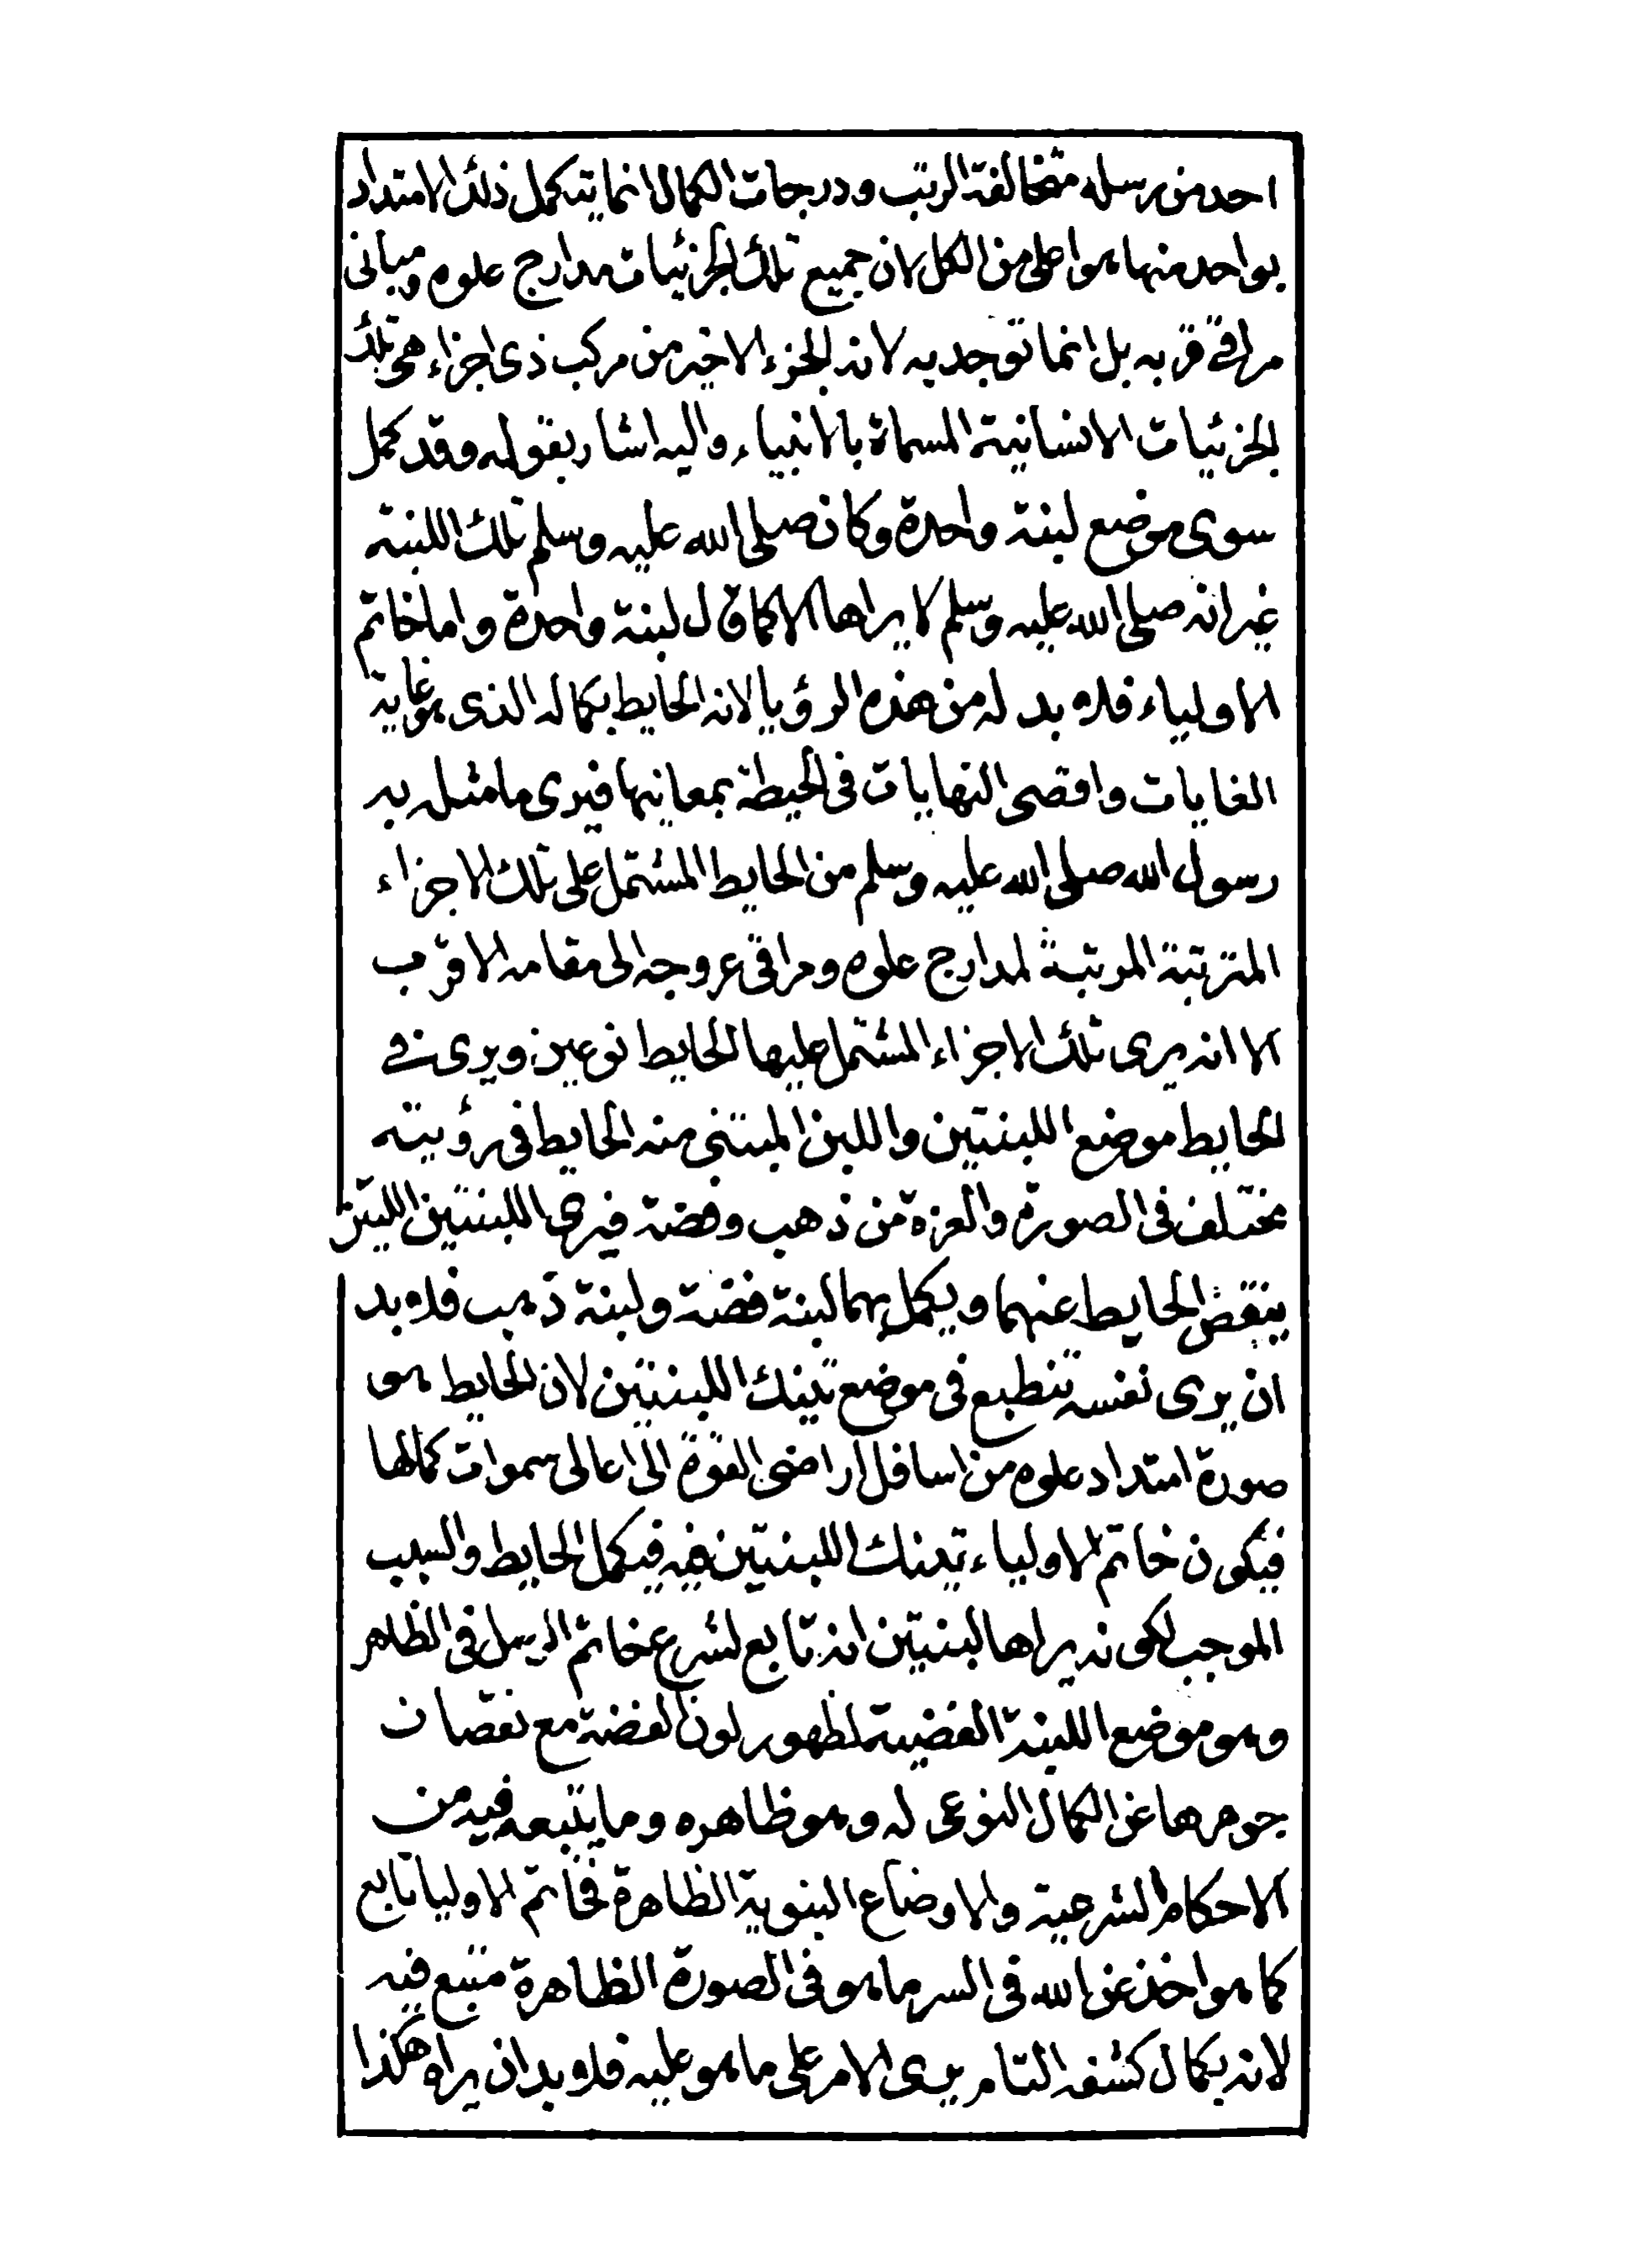 احد من رسله متخالفة الرتب ودرجات الكمال انما يتكمل ذلك الامتداد
بواحد منها هو اعلى من الكل لان جميع تلك الجزئيات مدارج علوه ومبانى
مراقى قربه بل انما توجد به لانه الجزء الاخير من مركب ذى اجزاء هى تلك
الجزئيات الانسانية المسماة بالانبياء واليه اشار بقوله وقد كمل
سوى موضع لبنة واحدة وكان صلى الله عليه وسلم تلك اللبنة
غير انه صلى الله عليه وسلم لا يراها الا كما قال لبنة واحدة واما خاتم
الاولياء فلا بد له من هذه الرؤيا لانه الحايط بكماله الذى هو غاية
الغايات واقصى النهايات فى الحيطة بمعانيها فيرى ما مثله به
رسول الله صلى الله عليه وسلم من الحايط المشتمل على تلك الاجزاء
المترتبة المرتبة لمدارج علوه ومراقى عروجه الى مقامه الاقرب
الا انه يرى تلك الاجزاء المشتمل عليها الحايط نوعين ويرى فى
الحايط موضع اللبنتين واللبن المبتنى منه الحايط فى رؤيته
مختلف فى الصورة والعزة من ذهب وفضة فيرى اللبنتين اللتين
ينقص الحايط عنهما ويكمل بهما لبنة فضة ولبنة ذهب فلا بد
ان يرى نفسه تنطبع فى موضع تينك اللبنتين لان الحايط هو
صورة امتداد علوه من اسافل اراضى القوة الى اعالى سموات كمالها
فيكون خاتم الاولياء تينك اللبنتين فيه فيكمل الحايط والسبب
الموجب لكونه يراها لبنتين انه تابع لشرع خاتم الرسل فى الظاهر
وهو موضع اللبنة الفضية لظهور لون الفضة مع نقصان
جوهرها عن الكمال النوعى له وهو ظاهره وما يتبعه فيه من
الاحكام الشرعية والاوضاع النبوية الظاهرة فخاتم الاوليا تابع
كما هو اخذ عن الله فى السر ما هو فى الصورة الظاهرة متبع فيه
لانه بكمال كشفه التام يرى الامر على ما هو عليه فلا بد ان يراه هكذا